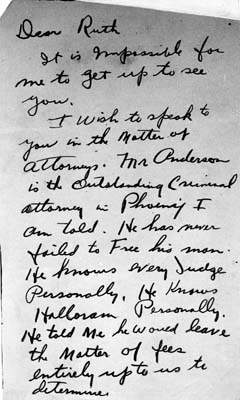 Dear Ruth
It is Impossible for
me to get up to see
you.
I wish to speak to
you in the Matter of
attorneys. Mr Anderson
is the Outstanding Criminal
attorney in Phoenix I
am told. He has never
failed to Free his man.
He knows every Judge
Personally, He Knows
Halloram Personally.
He told me he would leave
the Matter of fees
entirely up to us to
determine.